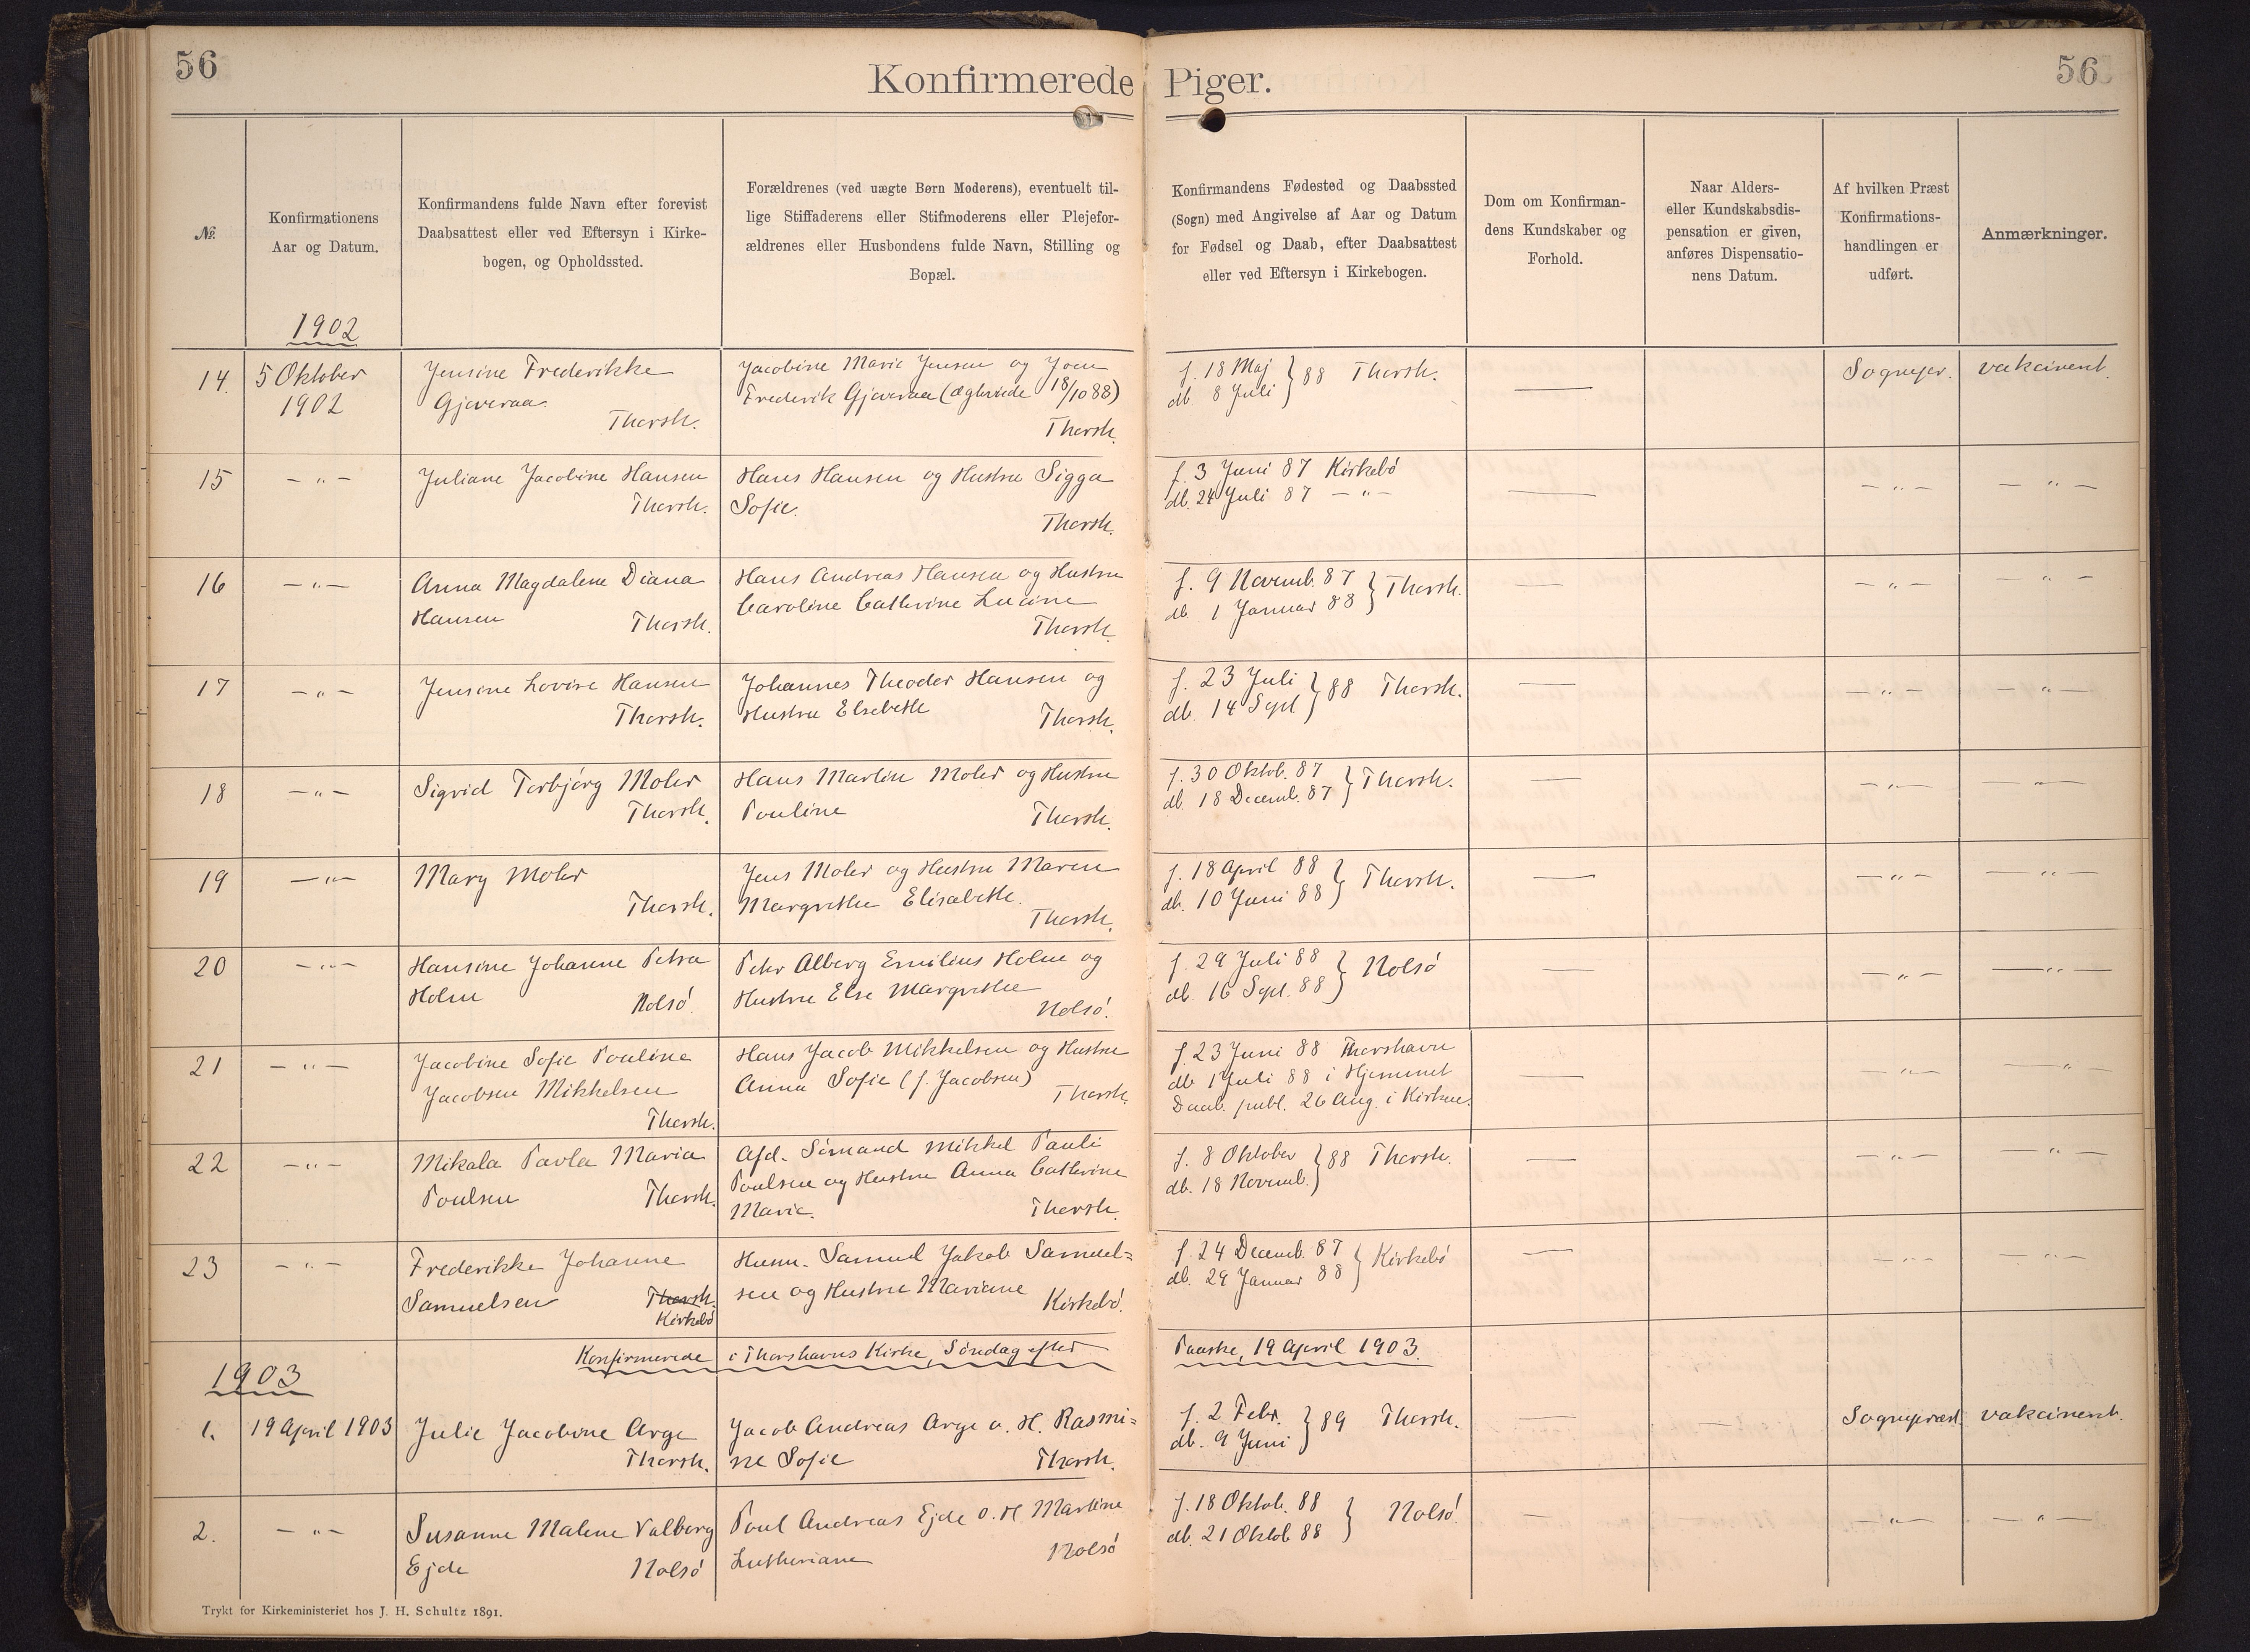 56
Konfirmerede Piger.
56
№.
Konfirmationens
Aar og Datum.
Konfirmandens fulde Navn efter forevist
Daabsattest eller ved Eftersyn i Kirke-
bogen, og Opholdssted.
Forældrenes (ved uægte Børn Moderens), eventuelt til-
lige Stiffaderens eller Stifmoderens eller Plejefor-
ældrenes eller Husbondens fulde Navn, Stilling og
Bopæl.
Konfirmandens Fødested og Daabssted
(Sogn) med Angivelse af Aar og Datum
for Fødsel og Daab, efter Daabsattest
eller ved Eftersyn i Kirkebogen.
Dom om Konfirman-
dens Kundskaber og
Forhold.
Naar Alders-
eller Kundskabsdis-
pensation er given,
anføres Dispensatio-
nens Datum.
Af hvilken Præst
Konfirmations-
handlingen er
udført.
Anmærkninger.
1902
14.
5 Oktober
1902
Jensine Frederikke
Gjoveraa
Thorsh.
Jacobine Marie Jensen og Joen
Frederik Gjoveraa (ægteviede 18/10 88)
Thorsh.
f. 18 Maj
db. 8 Juli } 88 Thorsh.
—
Sognepr.
vakcineret.
15
— " —
Juliane Jacobine Hansen
Thorsh.
Hans Hansen og Hustru Sigga
Sofie.
Thorsh.
f. 3 Juni 87 Kirkebö
db. 24 Juli 87 — " —
—
— " —
— " —
16
— " —
Anna Magdalene Diana
Hansen Thorsh.
Hans Andreas Hansen og Hustru
Caroline Cathrine Lucine
Thorsh.
f. 9 Novemb. 87
db 1 Januar 88 } Thorsh.
—
— " —
— " —
17
— " —
Jensine Lovise Hansen
Thorsh.
Johannes Theodor Hansen og
Hustru Elsebeth
Thorsh.
f. 23 Juli
db. 14 Sept } 88 Thorsh.
—
— " —
— " —
18
— " —
Sigrid Torbjörg Mohr
Thorsh.
Hans Martin Mohr og Hustru
Pouline Thorsh.
f. 30 Oktob. 87
db. 18 Decemb. 87 } Thorsh.
—
— " —
— " —
19
— " —
Mary Mohr
Thorsh.
Jens Mohr og Hustru Maren
Margrethe Elisabeth.
Thorsh.
f. 18 April 88
db. 10 Juni 88 } Thorsh.
—
— " —
— " —
20
— " —
Hansine Johanne Petra
Holm Nolsö.
Peter Alberg Emilius Holm og
Hustru Else Margrethe
Nolsö.
f. 29 Juli 88
db. 16 Sept. 88 } Nolsö
—
— " —
— " —
21
— " —
Jacobine Sofie Pouline
Jacobsen Mikkelsen
Thorsh.
Hans Jacob Mikkelsen og Hustru
Anna Sofie (f. Jacobsen)
Thorsh.
f. 23 Juni 88 Thorshavn
db 1 Juli 88 i Hjemmet
Daab. publ. 26 Aug. i Kirken.
—
— " —
— " —
22
— " —
Mikala Pavla Maria
Poulsen Thorsh.
Afd. Sömand Mikkel Pauli
Poulsen og Hustru Anna Cathrine
Marie. Thorsh.
f. 8 Oktober
db. 18 Novemb. } 88 Thorsh.
—
— " —
— " —
23
— " —
Frederikke Johanne
Samuelsen Thorsh.
Kirkebö
Husm. Samuel Jakob Samuel=
sen og Hustru Mariane
Kirkebö.
f. 24 Decemb. 87
db. 29 Januar 88 } Kirkebö
—
— " —
— " —
Konfirmerede i Thorshavns Kirke, Söndag efter Paaske, 19 April 1903.
1903
1.
19 April 1903
Julie Jacobine Arge
Thorsh.
Jacob Andreas Arge o. H. Rasmi=
ne Sofie Thorsh.
f. 2 Febr.
db. 9 Juni } 89 Thorsh.
—
—
Sognepræst.
vakcineret.
2.
— " —
Susanne Malene Valborg
Ejde Nolsö
Poul Andreas Ejde o. H. Martine
Lutheriane Nolsö
f. 18 Oktob. 88
db. 21 Oktob 88 } Nolsö.
—
— " —
— " —
Trykt for Kirkeministeriet hos J. H. Schultz 1891.